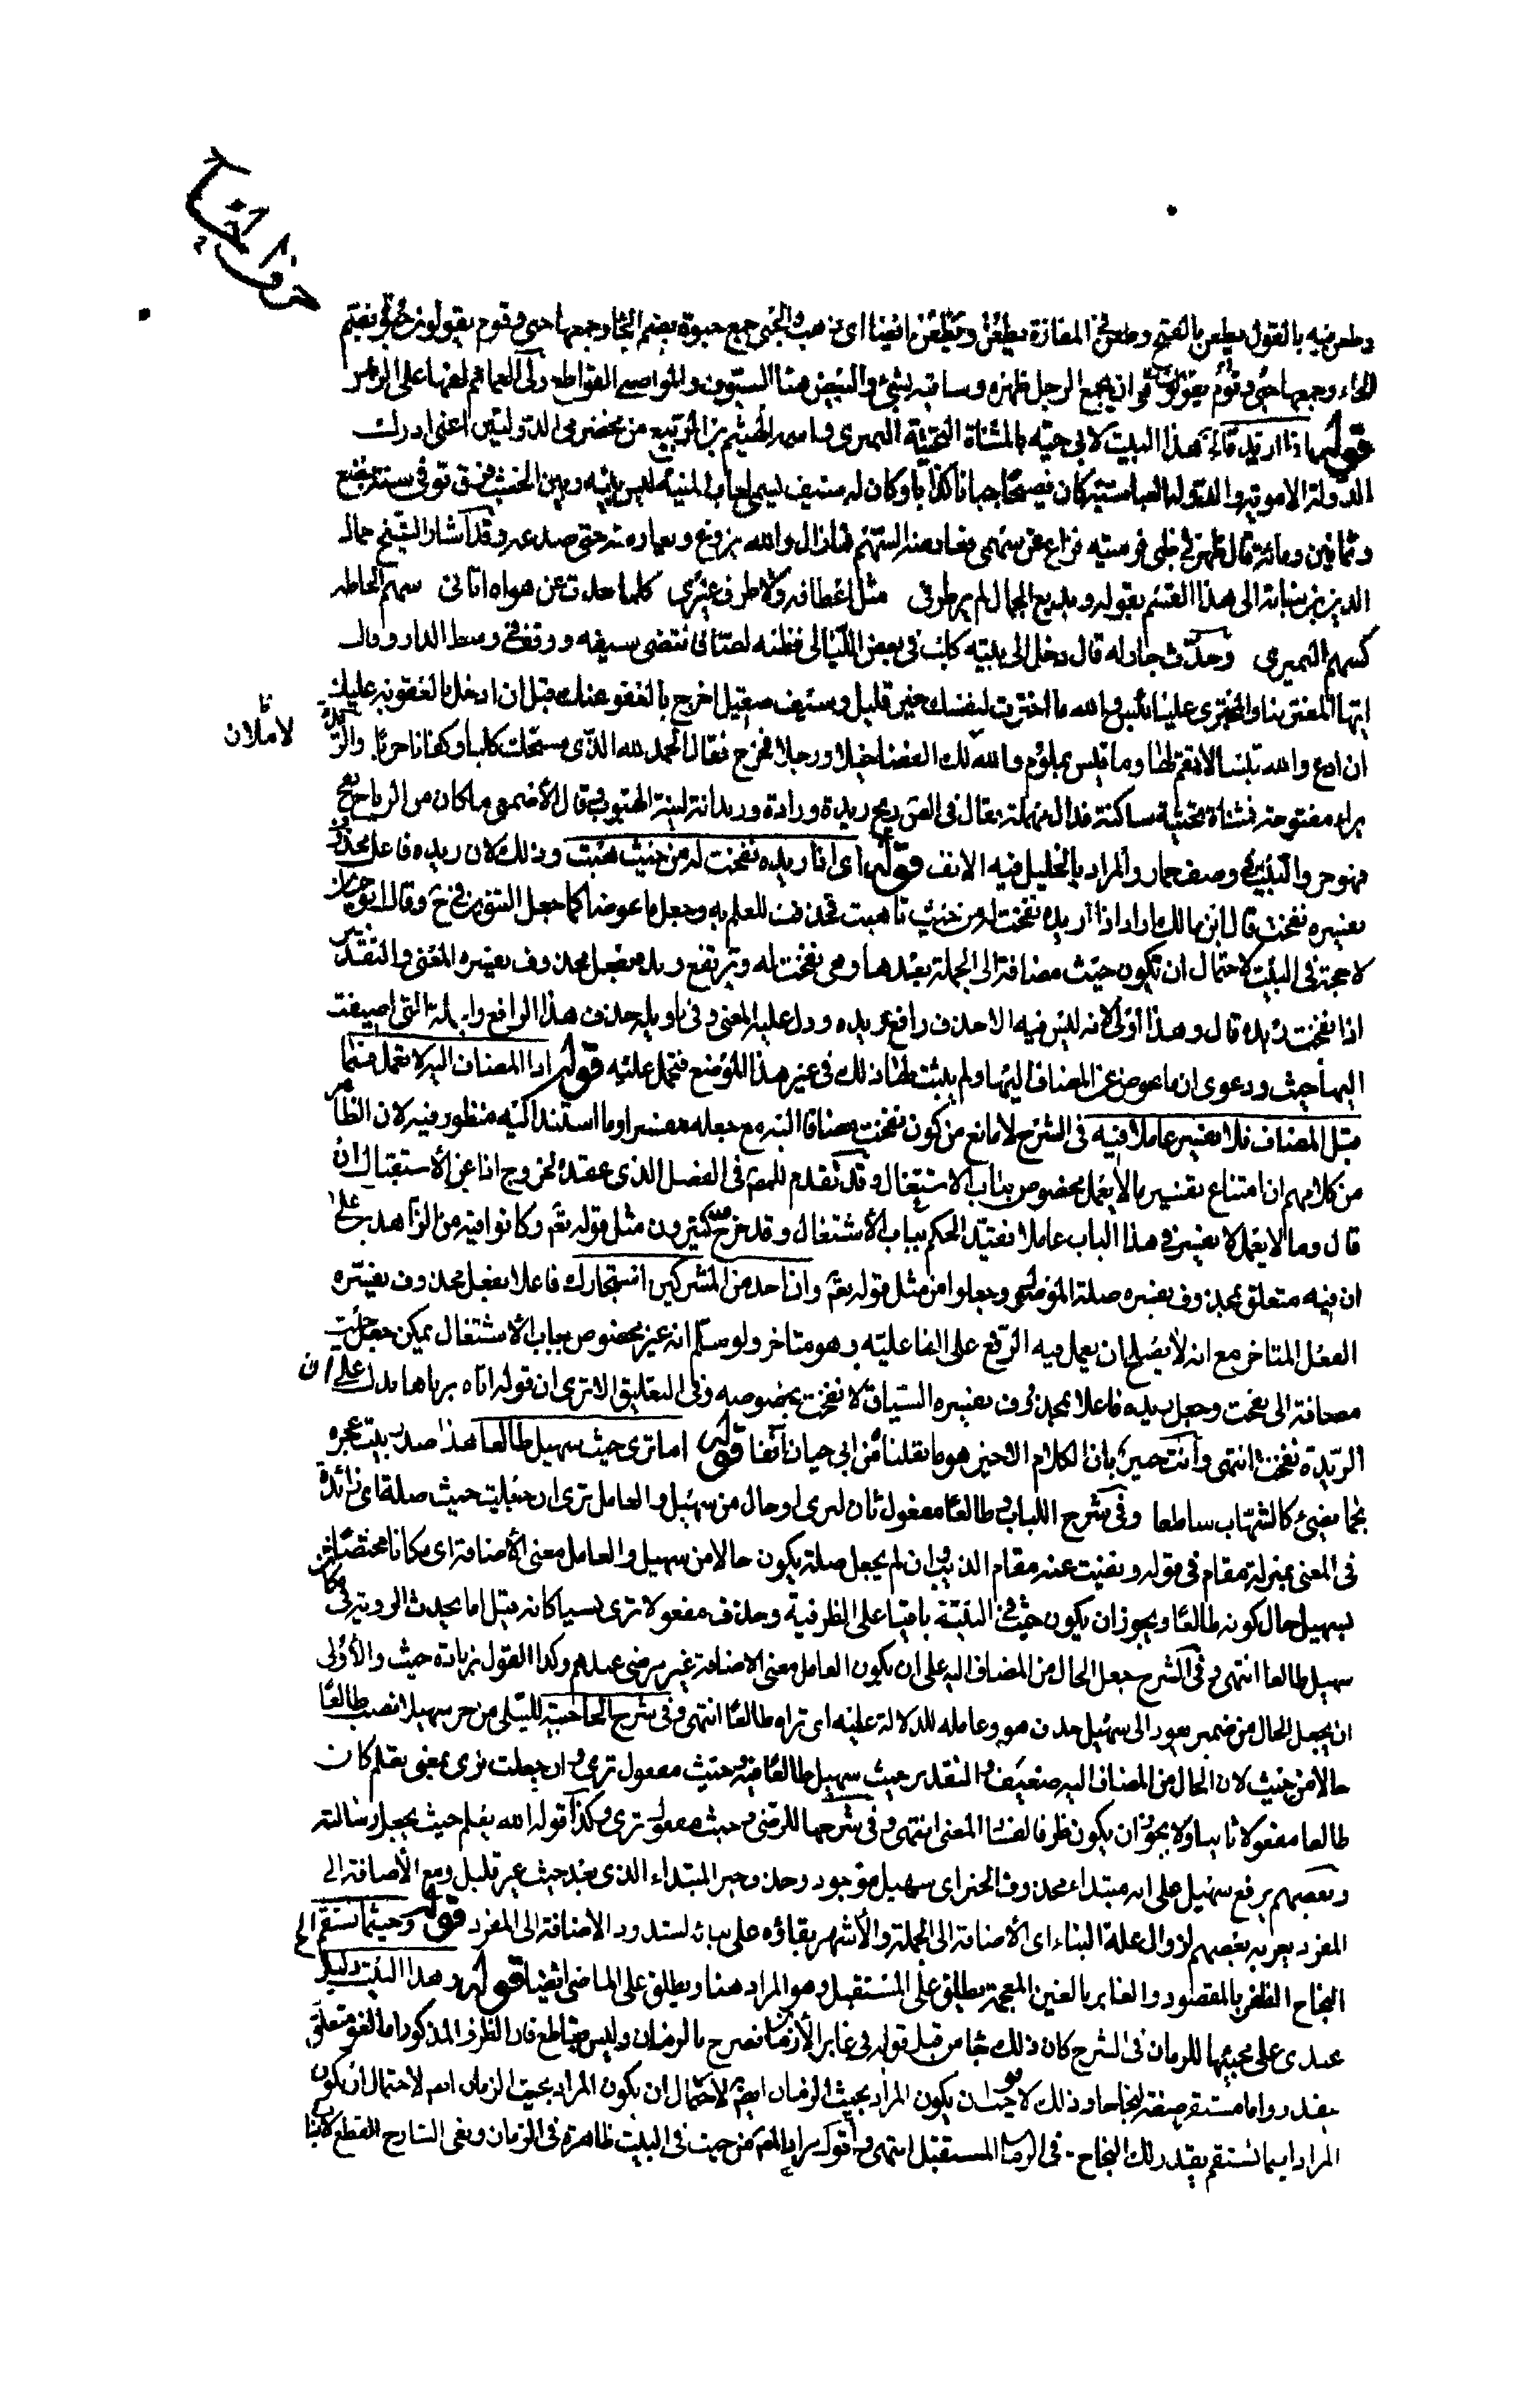 حرف الحاء
وطعن فيه بالقول يطعن بالفتح وطعن في المفازة يطعُن ويطعَن ايضا اى ذهب والحبى جمع حبوة بضم الحاء وجمعها حبى وقوم يقولون حبوة بفتح
الحاء وجمعها حبى وقوم يقولون هو ان يجمع الرجل ظهره وساقيه بشئ والبيض هنا السيوف والمواضى القواطع ولى العمائم لفها على الرؤس
قوله اذا ريدة قائله هذا البيت لابى حيّة بالمثناة التحتية النميرى واسمه الهيثم بن الربيع من مخضرمى الدولتين اعنى ادرك
الدولة الاموية والدولة العباسية كان فصيحا جبانا كذابا وكان له سيف يسمى لعاب المنية ليس بينه وبين الخشب فرق توفى سنة بضع
وثمانين ومائة قال ظهر لى ظبى فرميته فراغ عن سهمى فعارضه السهم فما زال والله يروغ ويعارضه حتى صدعه وقد اشار الشيخ جمال
الدين بن نباتة الى هذا القسم بقوله وبديع الجمال لم ير طرفى مثل اعطافه ولا طرف غيرى كلما حدت عن هواه اتانى سهم الحاظه
كسهم النميرى وحدّث جار له قال دخل الى بيته كلب فى بعض الليالى فظنه لصا فانتضى سيفه ووقف فى وسط الدار وقال
ايها المغتر بنا والمجترى علينا بئس والله ما اخترت لنفسك خير قليل وسيف صقيل اخرج بالعفو عنك قبل ان ادخل بالعقوبة عليك
ان ادع والله قيسا لا تقم لها وما قيس بملوم والله لك الفضا خيلا ورجلا فخرج فقال الحمد لله الذى مسخك كلبا وكفانا حربا والريدة
لاملان
براء مفتوحة فمثناة تحتية ساكنة فدال مهملة يقال فى الصح ريح ريدة ورادة وريدانة لينة الهبوب قال الاصمعى ما كان من الرياح نفح
وصف حمار والمراد بالخليل فيه الانف قوله اى اذا ريدة نفحت له من حيث هبت وذلك لان ريدة فاعل بمحذوف
يفسره نفحت قال ابن مالك اراد اذا ريدة نفحت له من حيث ما هبت فحذف للعلم به وجعل ما عوضا كما جعل التنوين فى ح وقال ابو حيان
لا حجة فى البيت لاحتمال ان تكون حيث مضافة الى الجملة بعدها وهى نفحت له وترتفع ريدة بفعل محذوف يفسره المعنى والتقدير
اذا نفحت ريدة قال وهذا اولى لانه ليس فيه الا حذف رافع ريدة ودل عليه المعنى وفى تاويله حذف هذا الرافع والجملة التى اضيفت
اليها حيث ودعوى ان ما عوض عن المضاف اليها ولم يثبت لها ذلك فى غير هذا الموضع فتحمل عليه قوله اذا المضاف اليه لا يعمل فيما
قبل المضاف فلا يفسر عاملا فيه فى الشرح لا مانع من كون نفحت مضافا اليه مع جعله مفسرا وما استند اليه منظور فيه لان الظاهر
من كلامهم ان امتناع تفسير ما لا يعمل مخصوص بباب الاشتغال وقد تقدم للمص فى الفصل الذى عقده لخروج اذا عن الاستقبال ان
قال وما لا يعمل لا يفسر فى هذا الباب عاملا فقيد الحكم بباب الاشتغال وقد خرج كثيرون مثل قوله تعم وكانوا فيه من الزاهدين على
ان فيه متعلق بمحذوف يفسره صلة الموصول وجعلوا من مثل قوله تعم وان احد من المشركين استجارك فاعلا بفعل محذوف يفسره
الفعل المتاخر مع انه لا يصلح ان يعمل فيه الرفع على الفاعلية وهو متاخر ولو سلم انه غير مخصوص بباب الاشتغال يمكن جعل حيث
مضافة الى نفحت وجعل ريدة فاعلا بمحذوف يفسره السياق لا نفحت بخصوصه وفى التعليق الا ترى ان قوله اتاه برياها يدلك على ان
الريدة نفحت انتهى وانت خبير بان الكلام الاخير هو ما نقلناه عن ابى حيان آنفا قوله اما ترى حيث سهيل طالعا هذا صدر بيت عجزه
نجما يضئ كالشهاب ساطعا وفى شرح اللباب و طالعا مفعول ثان لترى او حال من سهيل والعامل ترى ان جعلت حيث صلة اى زائدة
فى المعنى بمنزلة مقام فى قوله ونفيت عنه مقام الذئب وان لم يجعل صلة يكون حالا من سهيل والعامل معنى الاضافة اى مكانا مختصا
بسهيل حال كونه طالعا ويجوز ان يكون حيث فى البيت باقيا على الظرفية وحذف مفعولا ترى نسيا كانه قيل اما يحدث الروية فى مكان
سهيل طالعا انتهى وفى الشرح جعل الحال من المضاف اليه على ان يكون العامل معنى الاضافة غير مرضى عندهم وكذا القول بزيادة حيث والاولى
ان يجعل الحال من ضمير يعود الى سهيل حذف هو وعامله للدلالة عليه اى تراه طالعا انتهى وفى شرح الحاجبية للنيلى من جر سهيلا نصب طالعا
حالا من حيث لان الحال من المضاف اليه ضعيف و التقدير حيث سهيل طالعا فيه وحيث مفعول ترى وان جعلت ترى بمعنى تعلم كان
طالعا مفعولا ثانيا ولا يجوز ان يكون ظرفا لفساد المعنى انتهى وفى شرحها للرضى و حيث مفعول ترى وكذا قوله الله يعلم حيث يجعل رسالته
وبعضهم يرفع سهيل على انه مبتداء محذوف الخبر اى سهيل موجود وحذف خبر المبتداء الذى بعد حيث غير قليل ومع الاضافة الى
المفرد يعربه بعضهم لزوال علة البناء اى الاضافة الى الجملة والاشهر بقاؤه على بنائه لشذوذ الاضافة الى المفرد قوله وحيثما تستقم الخ
النجاح الظفر بالمقصود والغابر بالغين المعجمة يطلق على المستقبل وهو المراد هنا ويطلق على الماضى ايضا قوله وهذا البيت دليل
عندى على مجيئها للزمان فى الشرح كان ذلك جاء من قبل قوله فى غابر الازمان فصرح بالزمان وليس بقاطع فان الظرف المذكور اما لغو متعلق
بيقدر واما مستقر صفة لنجاحا وذلك لا يوجب ان يكون المراد بحيث الزمان ايضم لاحتمال ان يكون المراد بحيث الزمان لاحتمال ان يكون
المراد اينما تستقم يقدر لك النجاح فى الزمان المستقبل انتهى واقول مراد المص ان حيث فى البيت ظاهرة فى الزمان ونفى الشارح القطع لا ينا